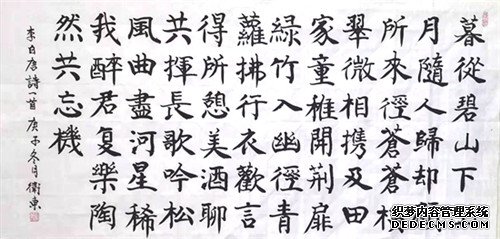 暮從碧山下
月隨人歸却
所來徑蒼蒼
翠微相携及田
家童稚開荊扉
綠竹入幽徑青
蘿拂行衣歡言
得所憩美酒聊
共揮長歌吟松
風曲盡河星稀
我醉君复樂陶
然共忘機
李白唐詩一首 庚子冬月 衛東
织梦内容管理系统
DEDECMS.COM